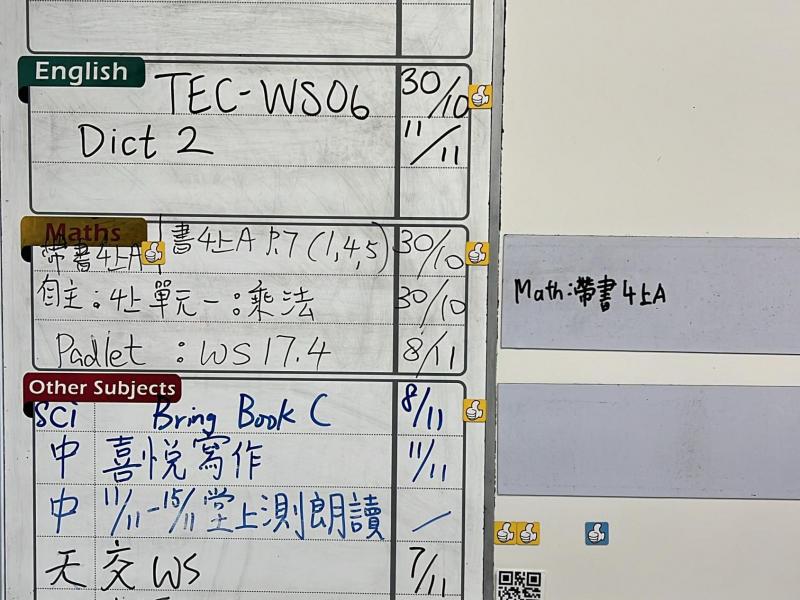 English
TEC-WS06 30/10
Dict 2 11/11
Maths
帶書4上A 書4上A P.7 (1,4,5) 30/10
自主：4上單元一：乘法 30/10
Padlet : WS 17.4 8/11
Other Subjects
Sci Bring Book C 8/11
中 喜悅寫作 11/11
中 11/11-15/11 堂上測朗讀 /
天 交 WS 7/11
Math:帶書4上A